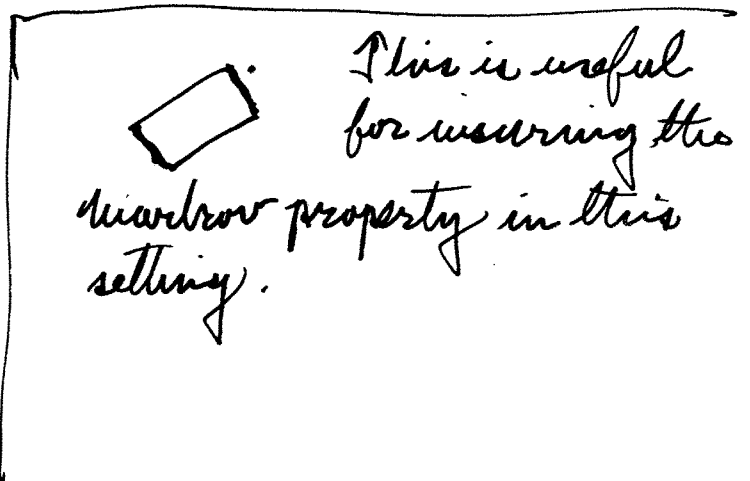 This is useful
for insuring the
markov property in this
setting.